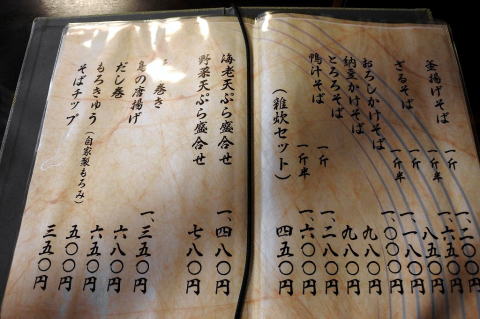 釜揚げそば 一斤 一、二〇〇円
一斤半 一、六五〇円
ざるそば 一斤 八五〇円
一斤半 一、一八〇円
おろしかけそば 一、〇〇〇円
納豆かけそば 九八〇円
とろろそば 九八〇円
鴨汁そば 一斤 一、二八〇円
一斤半 一、六〇〇円
(雑炊セット) 四五〇円
海老天ぷら盛合せ 一、四八〇円
野菜天ぷら盛合せ 七八〇円
巻き 一、三五〇円
鳥の唐揚げ 六八〇円
だし巻 六五〇円
もろきゅう(自家製もろみ) 五〇〇円
そばチップ 三五〇円